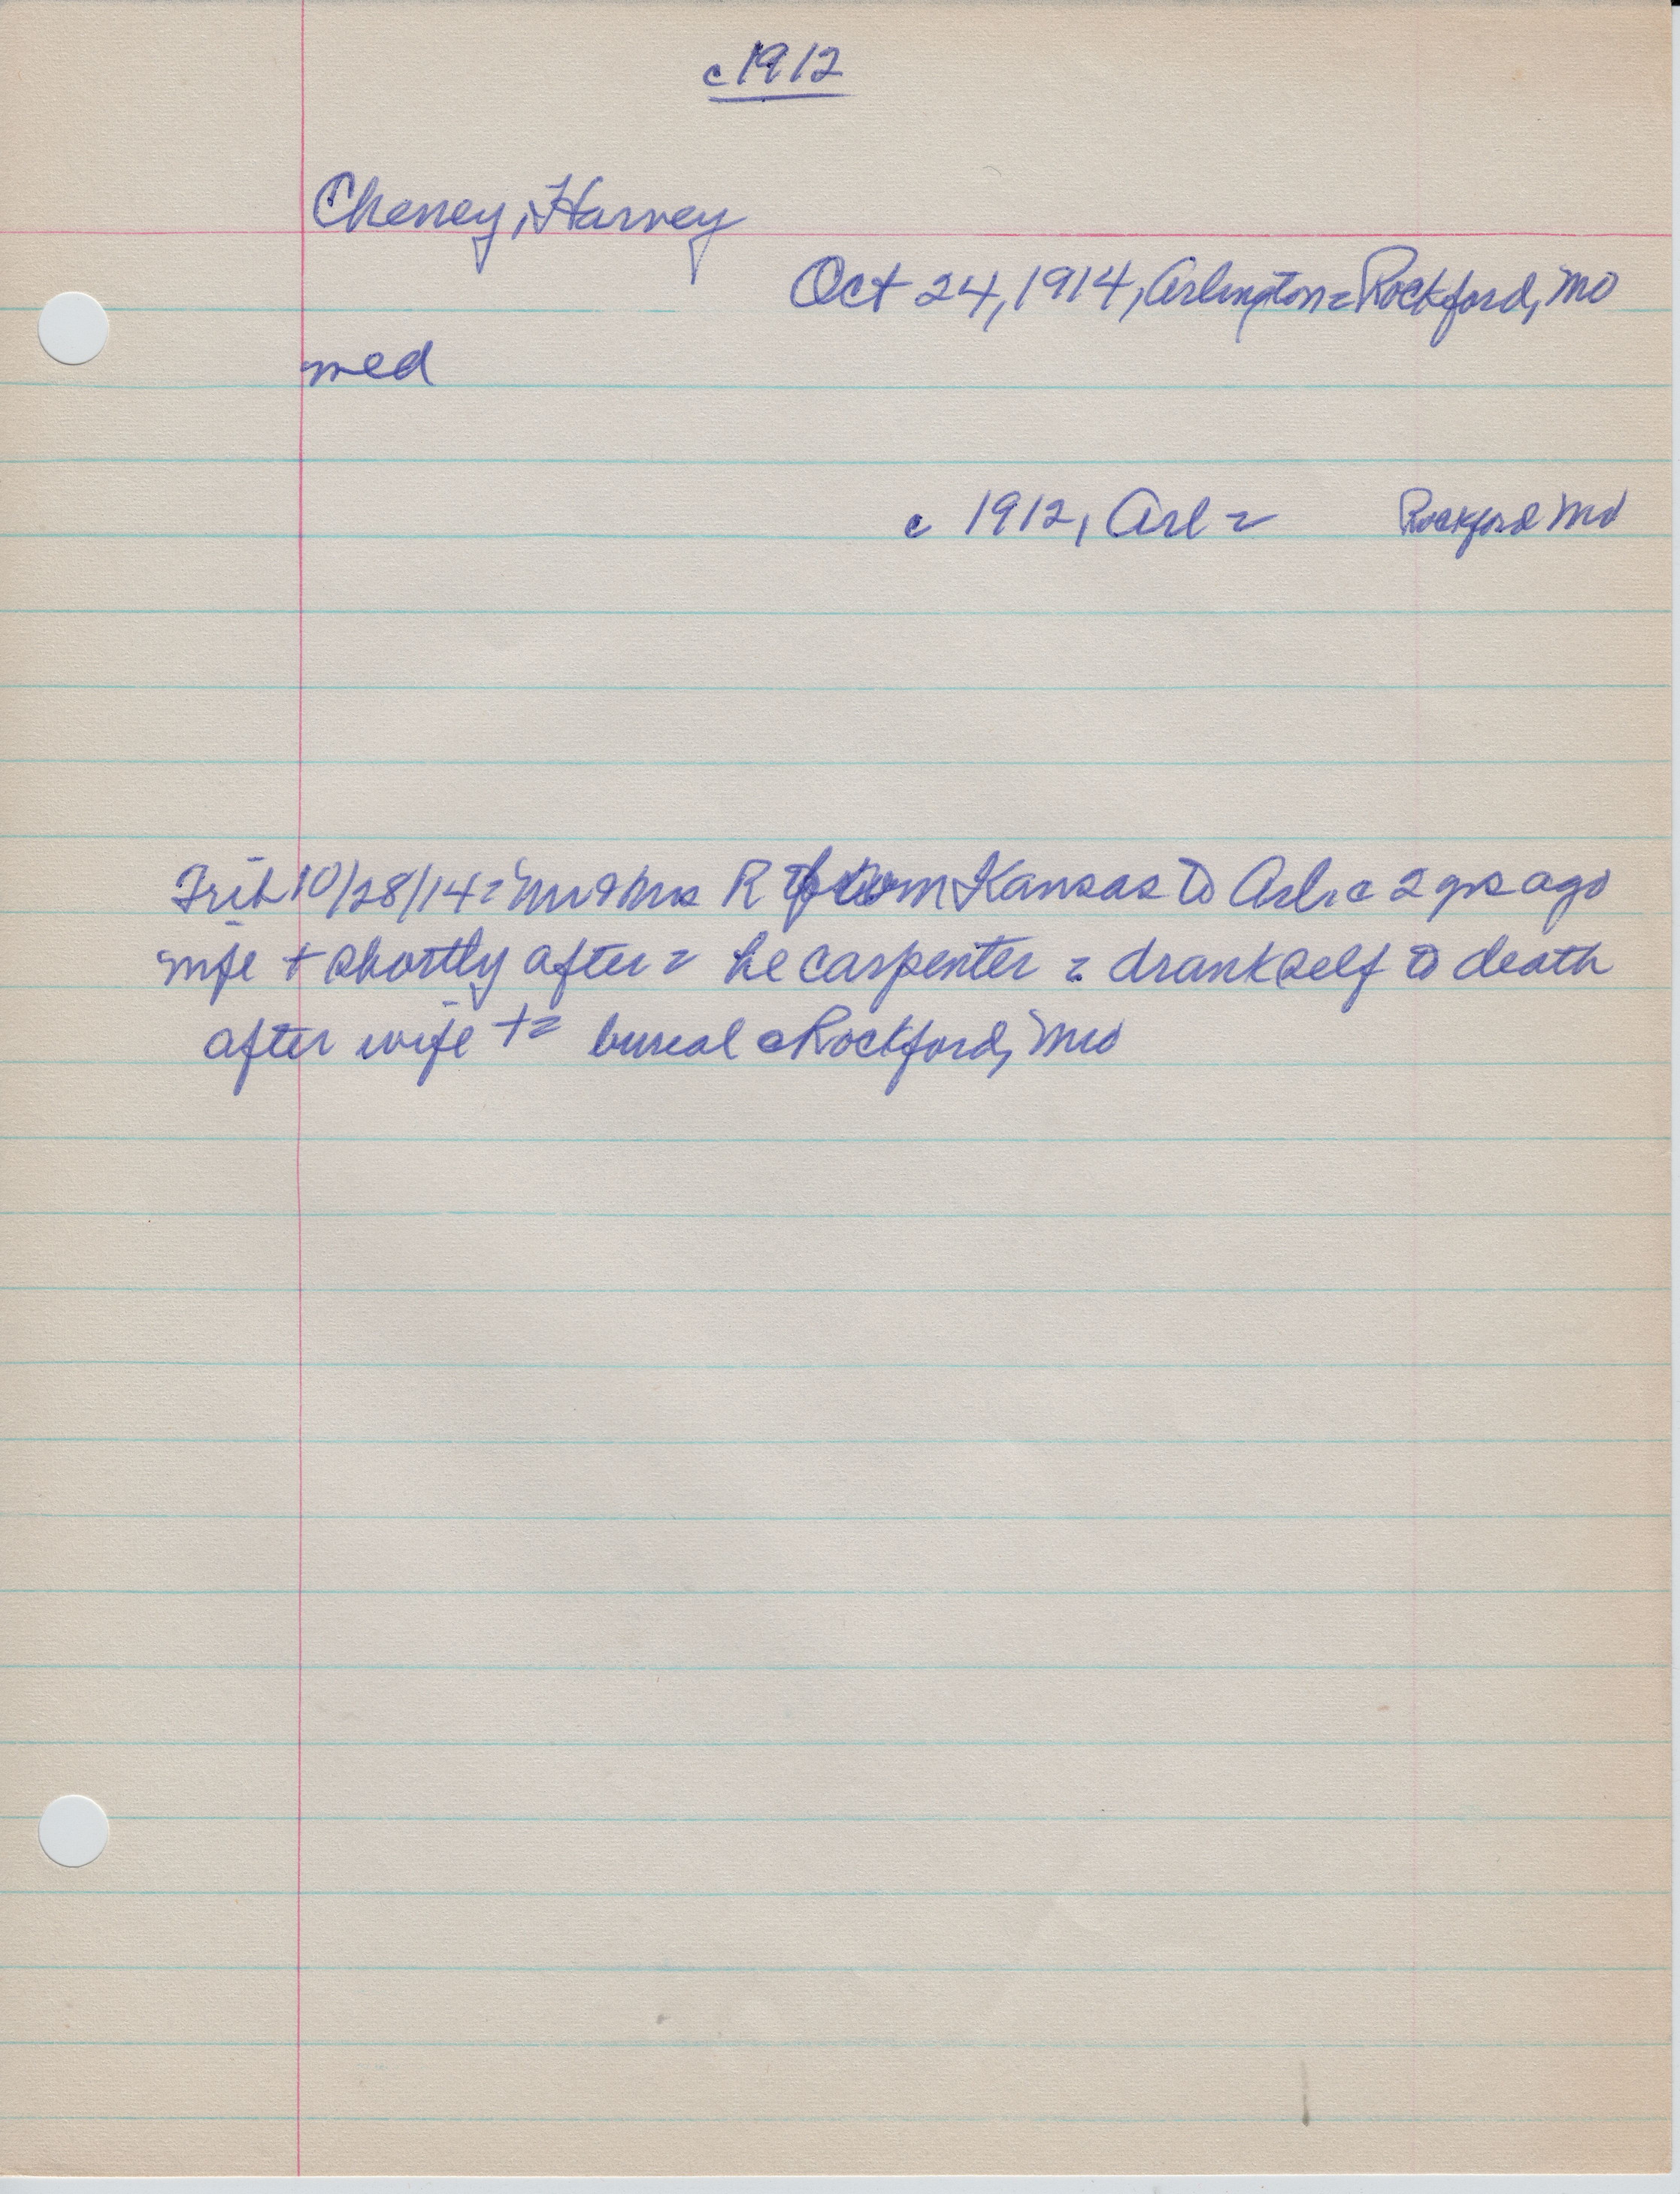 c1912
Cheney, Harvey
Oct 24, 1914, Arlington = Rockford, Mo
med
c 1912, Arl = Rockford Mo
Trib 10/28/14 = Mr & Mrs R from Kansas to Arl. c 2 yrs ago
wife + shortly after = he carpenter = drank self to death
after wife + = burial c Rockford, Mo